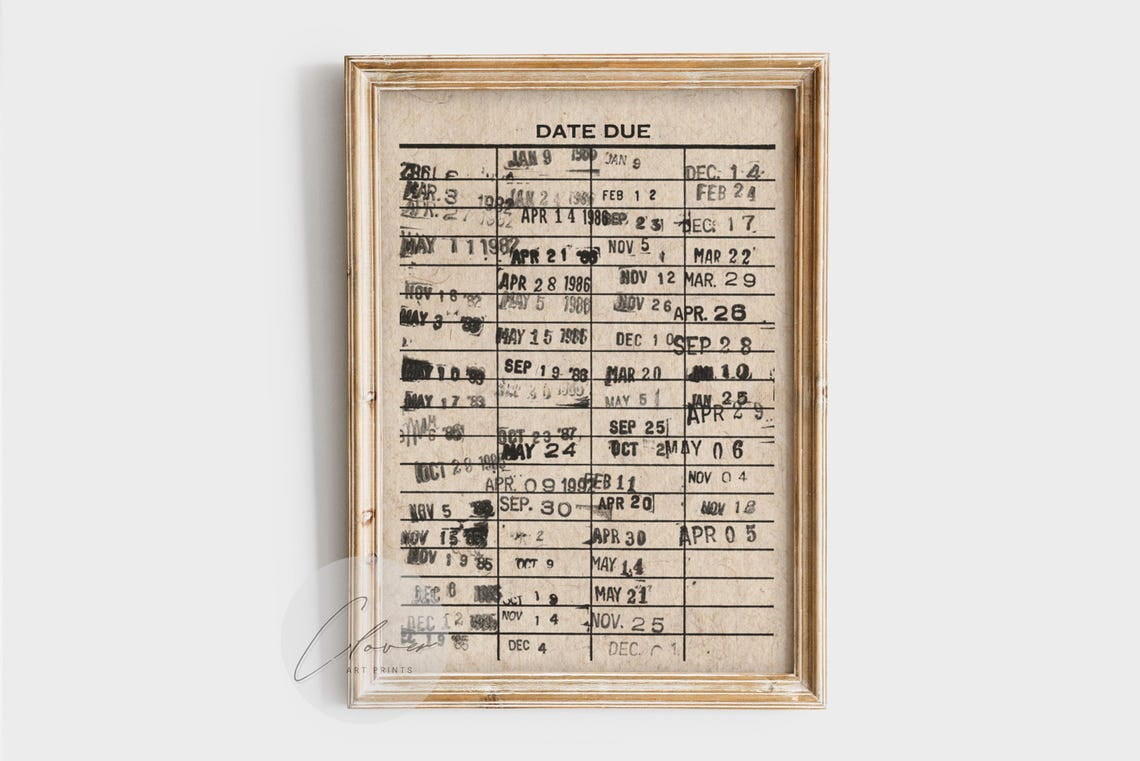 DATE DUE
JAN 9 1986 JAN 9
DEC. 14
MAR. 3 1982 JAN 2 1986 FEB 12 FEB 24
APR. 27 1982 APR 14 1986 SEP. 23 DEC. 17
MAY 11 1982 APR 21 '86 NOV 5 MAR 22
APR 28 1986 NOV 12 MAR. 29
NOV 16 '82 MAY 5 1986 NOV 26 APR. 26
MAY 3
MAY 15 1986 DEC 10 SEP 28
MAY 10 '83 SEP 19 '86 MAR 20 10
MAY 17 '83 MAY 5 JAN 25
APR 29
MAY 6 OCT 23 '87 SEP 25
MAY 24 OCT 2 MAY 06
OCT 28 APR. 09 1992 FEB 11 NOV 04
NOV 5 SEP. 30 APR 20 NOV 18
NOV 15 2 APR 30 APR 05
NOV 19 '85 OCT 9 MAY 14
DEC 6 OCT 19 MAY 21
DEC 12 1985 NOV 14 NOV. 25
19 '85 DEC 4 DEC. 1
Clover
ART PRINTS